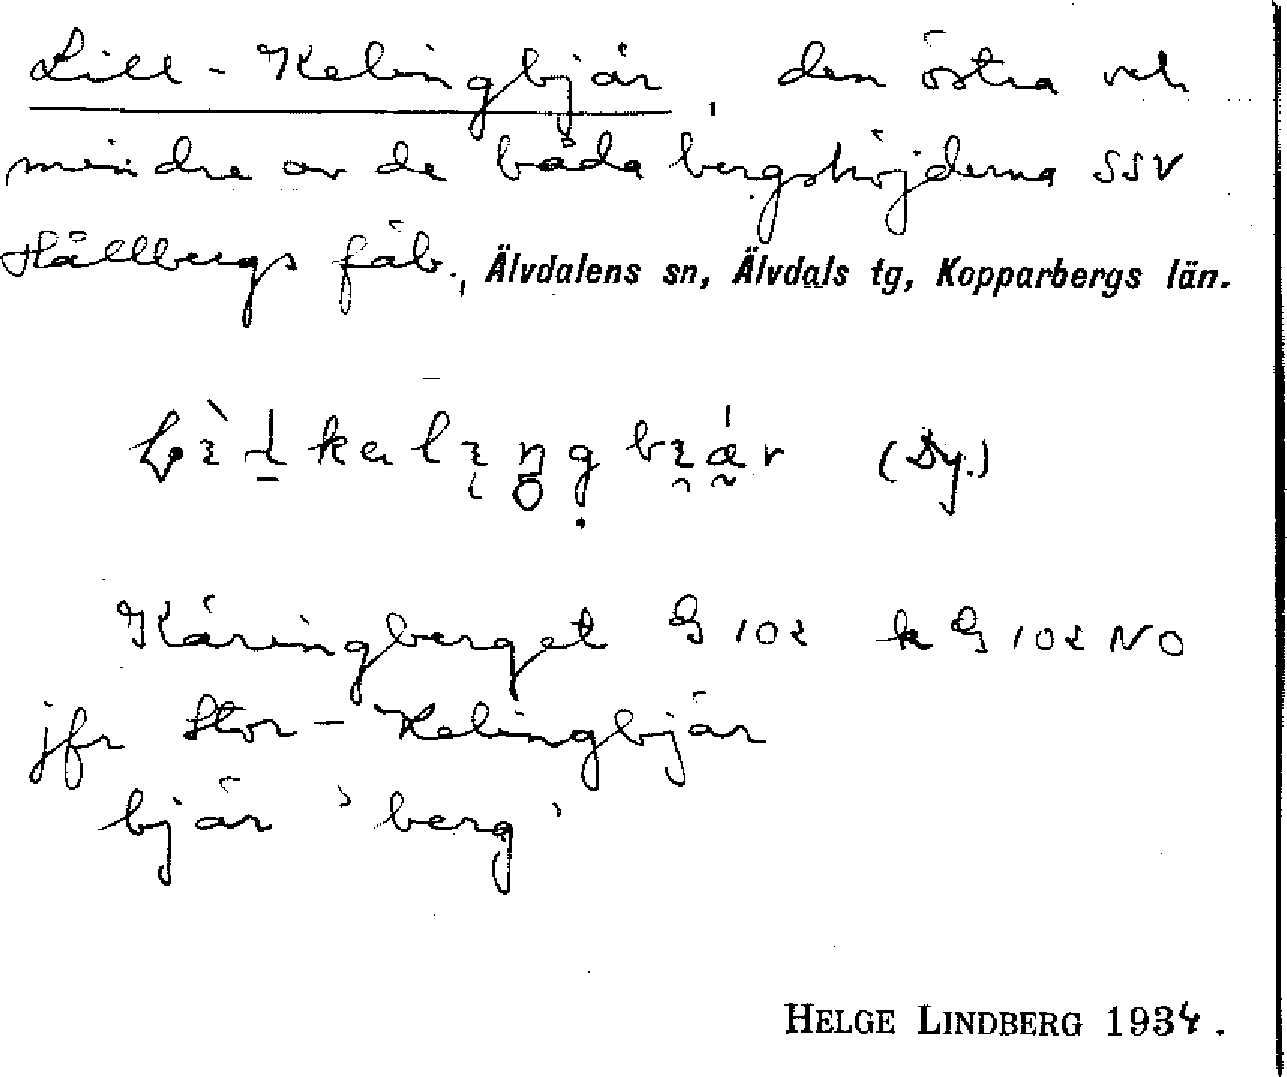 Lill-Kelingbjär, den östra och
mindre av de båda bergshöjderna SSV
Hällbergs fäb., Älvdalens sn, Älvdals tg, Kopparbergs län.
(Dy.)
Käringberget G 102 k G 102 NO
jfr Stor-Kelingbjär
bjär 'berg'
HELGE LINDBERG 1934.